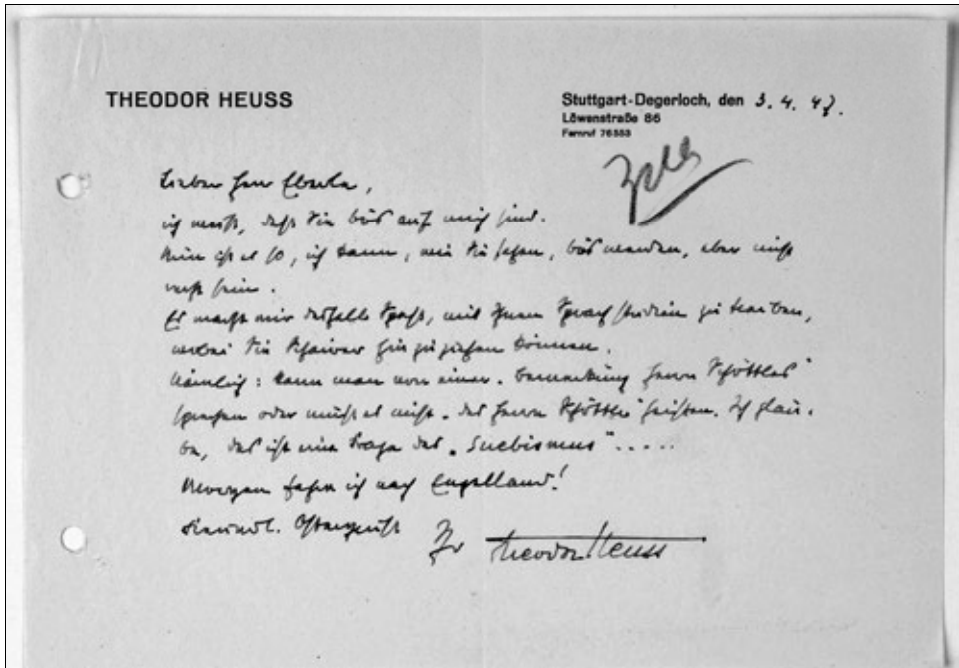 THEODOR HEUSS
Stuttgart-Degerloch, den 3. 4. 47.
Löwenstraße 86
Fernruf 76553
Lieber Herr Eberle,
ich weiß, daß Sie bös auf mich sind.
Nun ist es so, ich kann, wie Sie sehen, bös werden, aber nicht
sein.
Es macht mir deshalb Spaß, mit Ihnen Sprachstudien zu treiben,
wobei Sie Schairer hinzuziehen können.
Nämlich: kann man von einer „Bemerkung Herrn Schöttles"
sprechen oder muß es nicht „des Herrn Schöttle" heißen. Ich glau-
be, das ist eine Frage des „Suebismus" .....
Morgen fahre ich nach Engelland!
Freundl. Ostergruß
Ihr Theodor Heuss